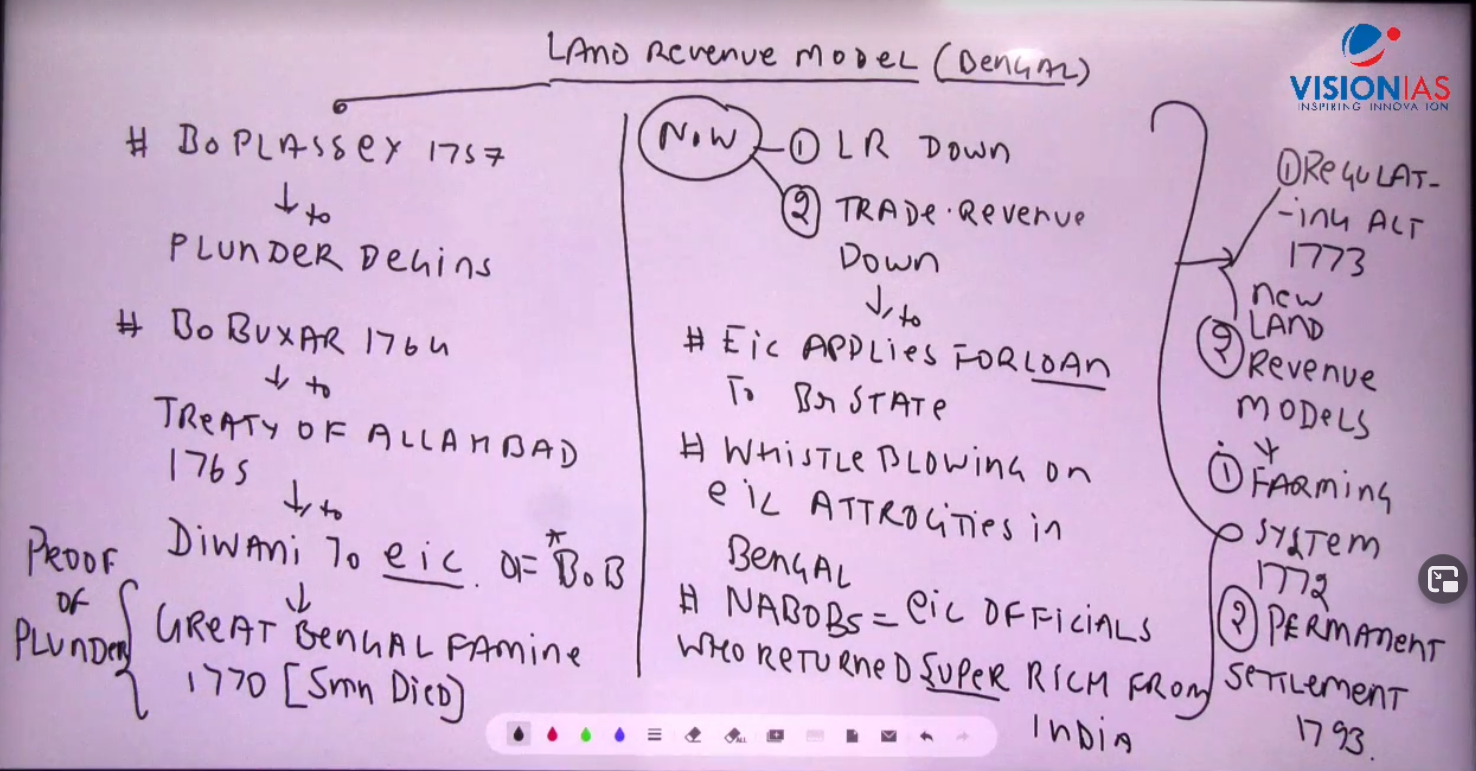 LAND REVENUE MODEL (BENGAL)
# BO PLASSEY 1757
↓ to
PLUNDER BEGINS
# BO BUXAR 1764
↓ to
TREATY OF ALLAHBAD
1765
↓ to
DIWANI TO EIC OF *BOB
↓
PROOF
OF
PLUNDER
GREAT BENGAL FAMINE
1770 [5mn DIED]
NOW
① LR DOWN
② TRADE REVENUE
DOWN
↓ to
# EIC APPLIES FOR LOAN
To Br STATE
# WHISTLE BLOWING ON
EIC ATTROCITIES in
BENGAL
# NABOBS = EIC OFFICIALS
WHO RETURNED SUPER RICH FROM
INDIA
① REGULAT-
-ING ACT
1773
② NEW
LAND
REVENUE
MODELS
↓
① FARMING
SYSTEM
1772
② PERMANENT
SETTLEMENT
1793.
VISIONIAS
INSPIRING INNOVATION
ALL